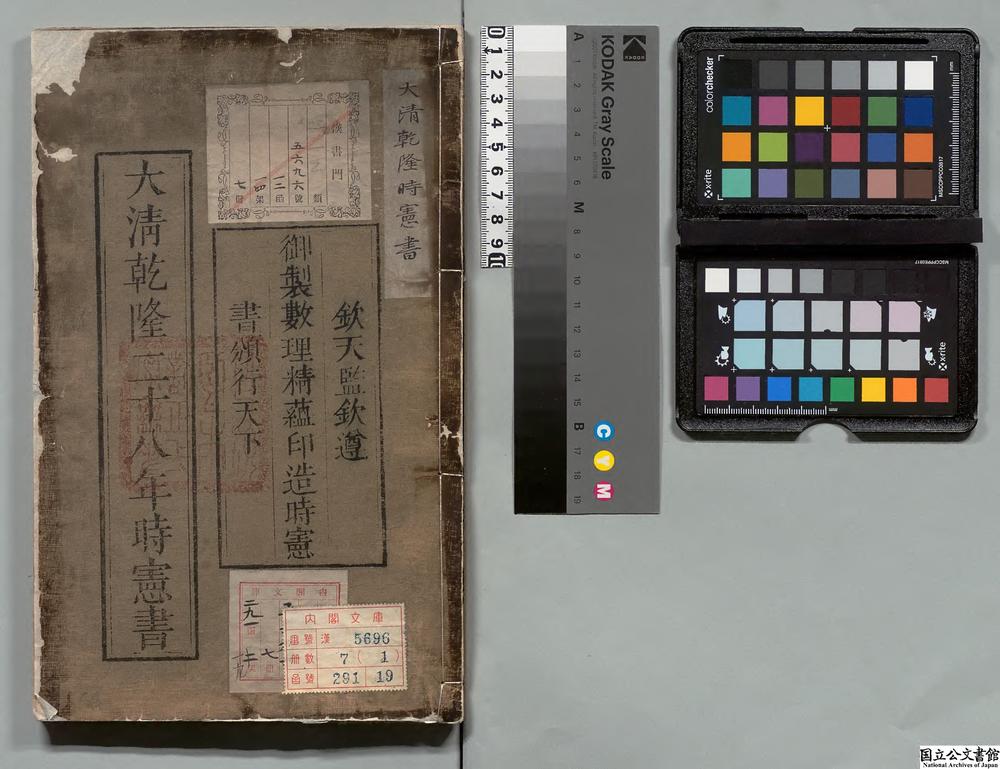 大清乾隆二十八年時憲書
大清乾隆時憲書
欽天監欽遵
御製數理精蘊印造時憲
書頒行天下
漢書門
類
五六九六號
一二函
一四架
七冊
內閣文庫
番號 漢 5696
冊數 7 ( 1 )
函號 291 19
二九一
七
0 1 2 3 4 5 6 7 8 9 10
KODAK Gray Scale
KODAK
A 1 2 3 4 5 6 M 8 9 10 11 12 13 14 15 B 17 18 19
C
Y
M
colorchecker
x-rite
mm
MSCCPPCC0817
MSCCPPPE0817
x-rite
mm
国立公文書館
National Archives of Japan